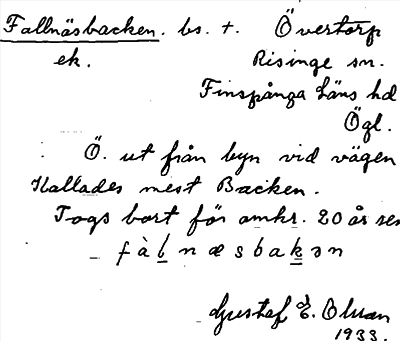 Fallnäsbacken. bs. t. Övertorp
ek. Risinge sn.
Finspånga Läns hd
Ögl.
Ö. ut från byn vid vägen
Kallades mest Backen.
Togs bort för omkr. 20 år sen
fàl̲næsbak̲ən
Gustaf E. Olsson
1933.